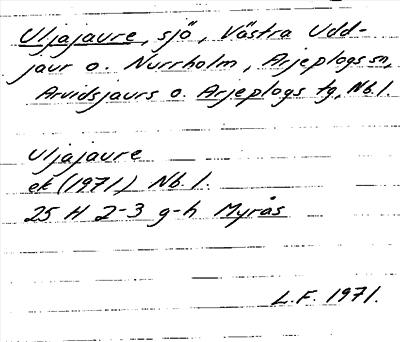 Uljajaure, sjö, Västra Udd-
jaur o. Nurrholm, Arjeplogs sn,
Arvidsjaurs o. Arjeplogs tg, Nb. l.
Uljajaure
ek (1971) Nb. l.
25 H 2-3 g-h Myrås
L.F. 1971.